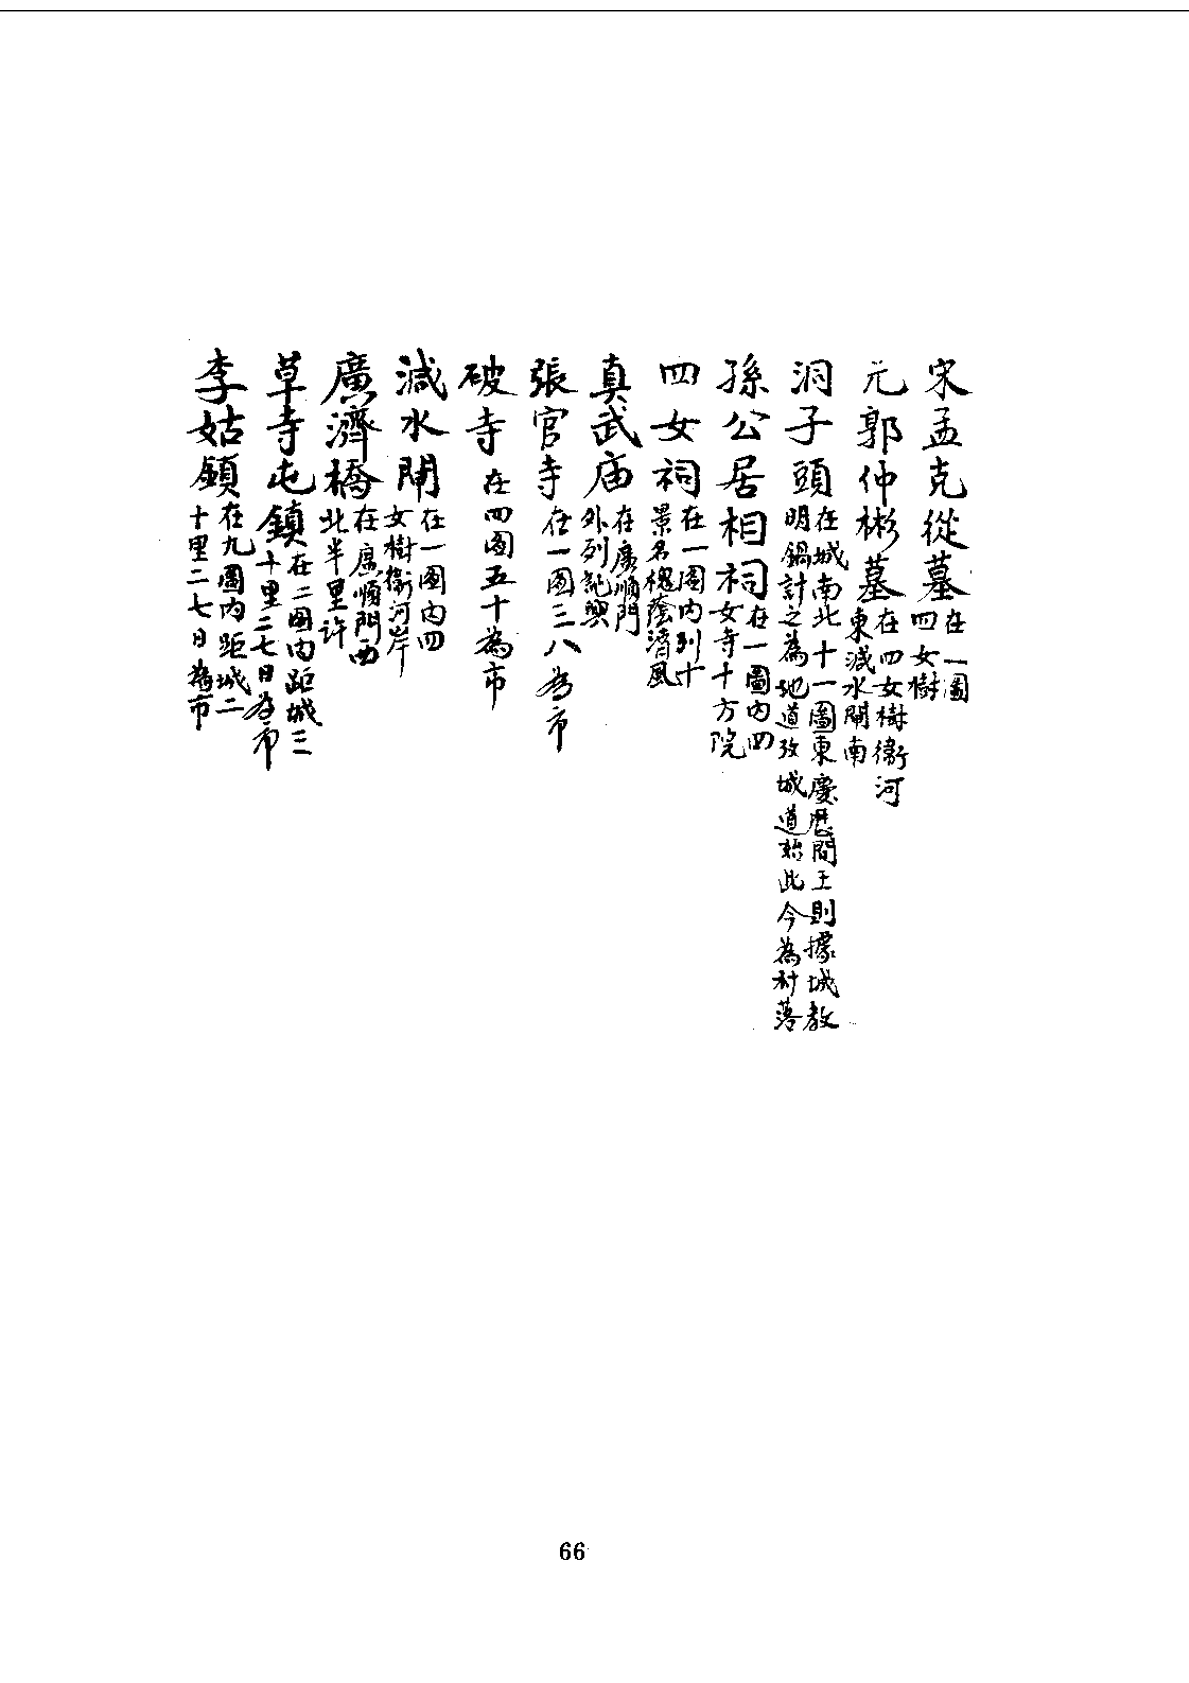 宋孟克從墓在一圖四女樹
元郭仲彬墓在四女樹衛河東減水閘南
洞子頭在城南北十一圖東慶曆間王則據城教明鎬討之為地道攻城道始此今為村落
孫公居相祠在一圖內四女寺十方院
四女祠在一圖內列十景名槐蔭清風
真武庙在廣順門外列記興
張官寺在一圖三八為市
破寺在四圖五十為市
減水閘在一圖內四女樹衛河岸
廣濟橋在廣順門西北半里許
草寺屯鎮在二圖內距城三十里二七日為市
李姑鎮在九圖內距城二十里二七日為市
66